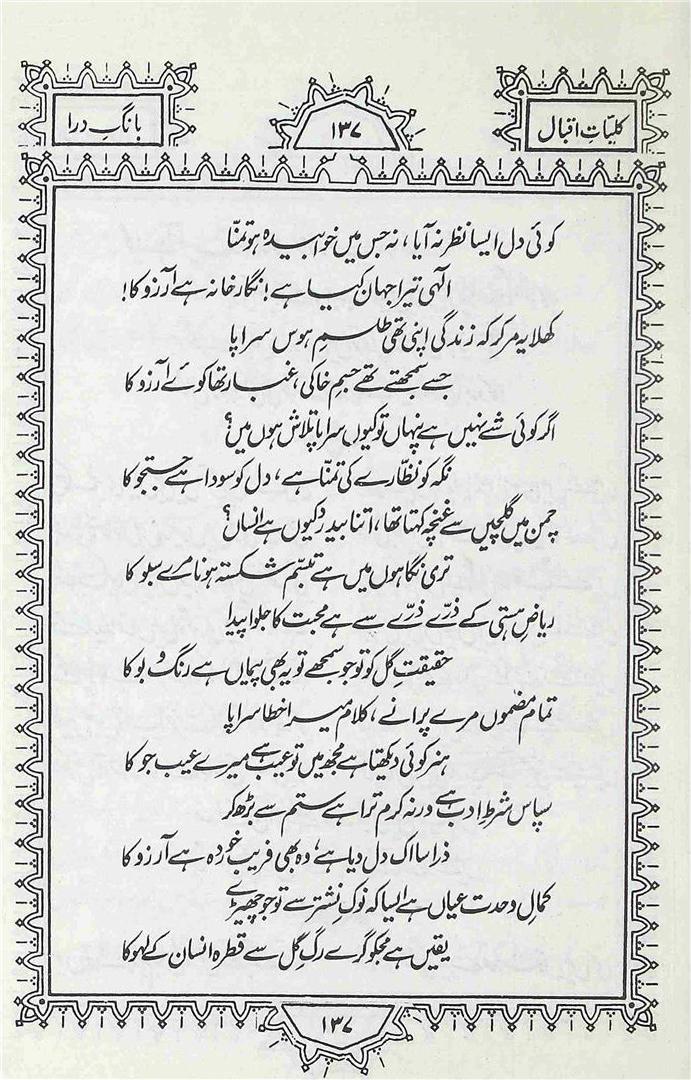 کلیّاتِ اقبال
۱۳۷
بانگِ درا
کوئی دل ایسا نظر نہ آیا، نہ جس میں خوابیدہ ہو تمنّا
الٰہی تیرا جہان کیا ہے! نگارخانہ ہے آرزو کا!
کھلا یہ مر کر کہ زندگی اپنی تھی طلسمِ ہوس سراپا
جسے سمجھتے تھے جسمِ خاکی، غبار تھا کوئے آرزو کا
اگر کوئی شے نہیں ہے پنہاں تو کیوں سراپا تلاش ہوں میں؟
نگہ کو نظّارے کی تمنّا ہے، دل کو سودا ہے جستجو کا
چمن میں گلچیں سے غنچہ کہتا تھا، اتنا بیدرد کیوں ہے انساں؟
تری نگاہوں میں ہے تبسّم شکستہ ہونا مرے سبو کا
ریاضِ ہستی کے ذرّے ذرّے سے ہے محبت کا جلوا پیدا
حقیقتِ گل کو تو جو سمجھے تو یہ بھی پیماں ہے رنگ و بو کا
تمام مضموں مرے پرانے، کلام میرا خطا سراپا
ہنر کوئی دیکھتا ہے مجھ میں تو عیب ہے میرے عیب جو کا
سپاس شرطِ ادب ہے ورنہ کرم ترا ہے ستم سے بڑھ کر
ذرا سا اک دل دیا ہے، وہ بھی فریب خوردہ ہے آرزو کا
کمالِ وحدت عیاں ہے ایسا کہ نوکِ نشتر سے تو جو چھیڑے
یقیں ہے مجکو گرے رگِ گل سے قطرہ انسان کے لہو کا
۱۳۷